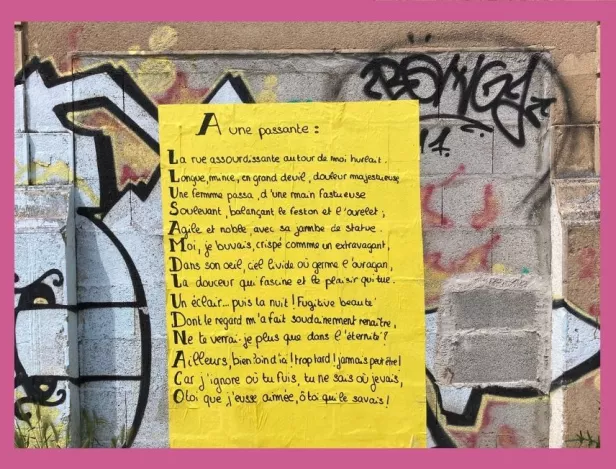 BONGY
A une passante :
La rue assourdissante autour de moi hurlait.
Longue, mince, en grand deuil, douleur majestueuse,
Une femme passa, d'une main fastueuse
Soulevant, balançant le feston et l'ourelet ;
Agile et noble, avec sa jambe de statue.
Moi, je buvais, crispé comme un extravagant,
Dans son oeil, ciel livide où germe l'ouragan,
La douceur qui fascine et le plaisir qui tue.
Un éclair... puis la nuit ! Fugitive beauté
Dont le regard m'a fait soudainement renaître,
Ne te verrai-je plus que dans l'éternité ?
Ailleurs, bien loin d'ici ! trop tard ! jamais peut être !
Car j'ignore où tu fuis, tu ne sais où je vais,
O toi que j'eusse aimée, ô toi qui le savais !